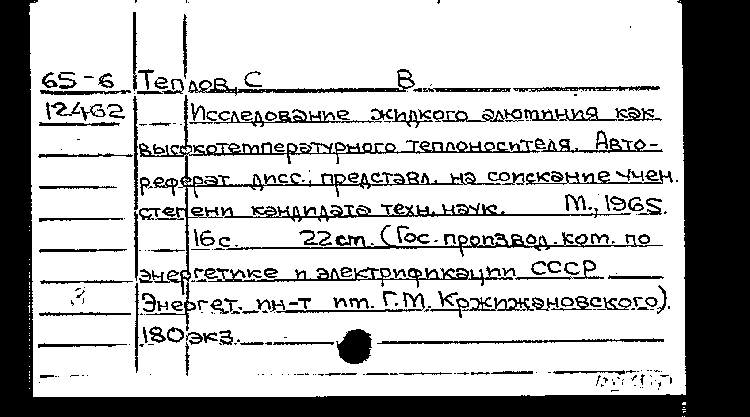 65-6 Теплов, С В
12462 Исследование жидкого алюминия как
высокотемпературного теплоносителя. Авто-
реферат дисс., представл. на соискание учен.
степени кандидата техн. наук. М., 1965.
16с. 22cm. (Гос. производ. ком. по
энергетике и электрификации СССР
3 Энергет. ин-т им. Г.М. Кржижановского).
180 экз.